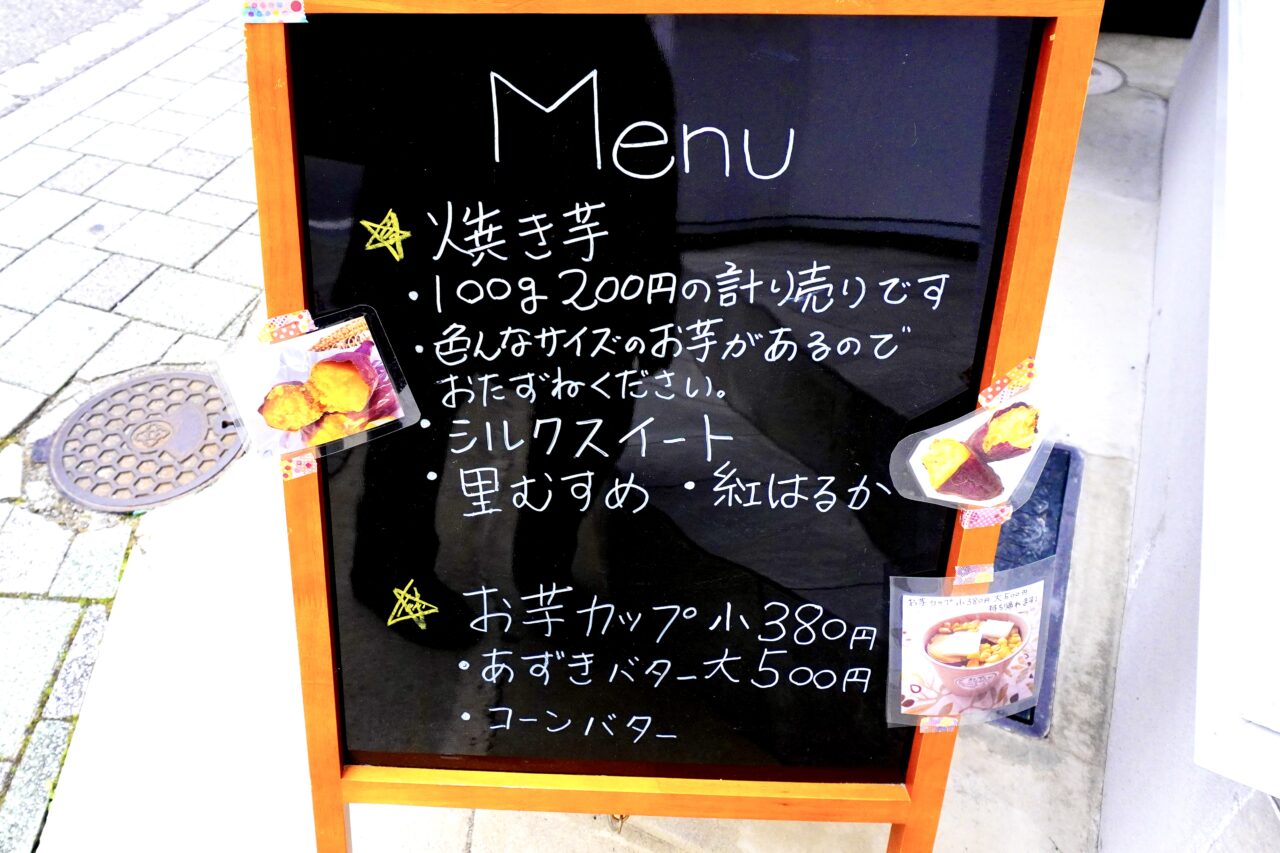 Menu
焼き芋
・100g 200円の計り売りです
・色んなサイズのお芋があるので
おたずねください。
・シルクスイート
・里むすめ ・紅はるか
お芋カップ 小380円
・あずきバター 大500円
・コーンバター
お芋カップ 小380円 大500円
持ち帰れます!